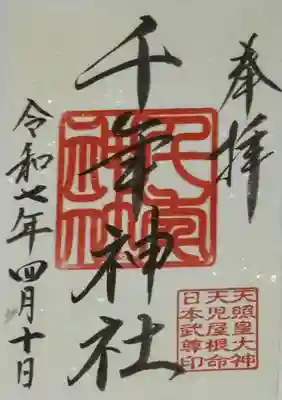 奉拝
千年神社
令和七年四月十日
天照皇大神
天児屋根命
日本武尊印